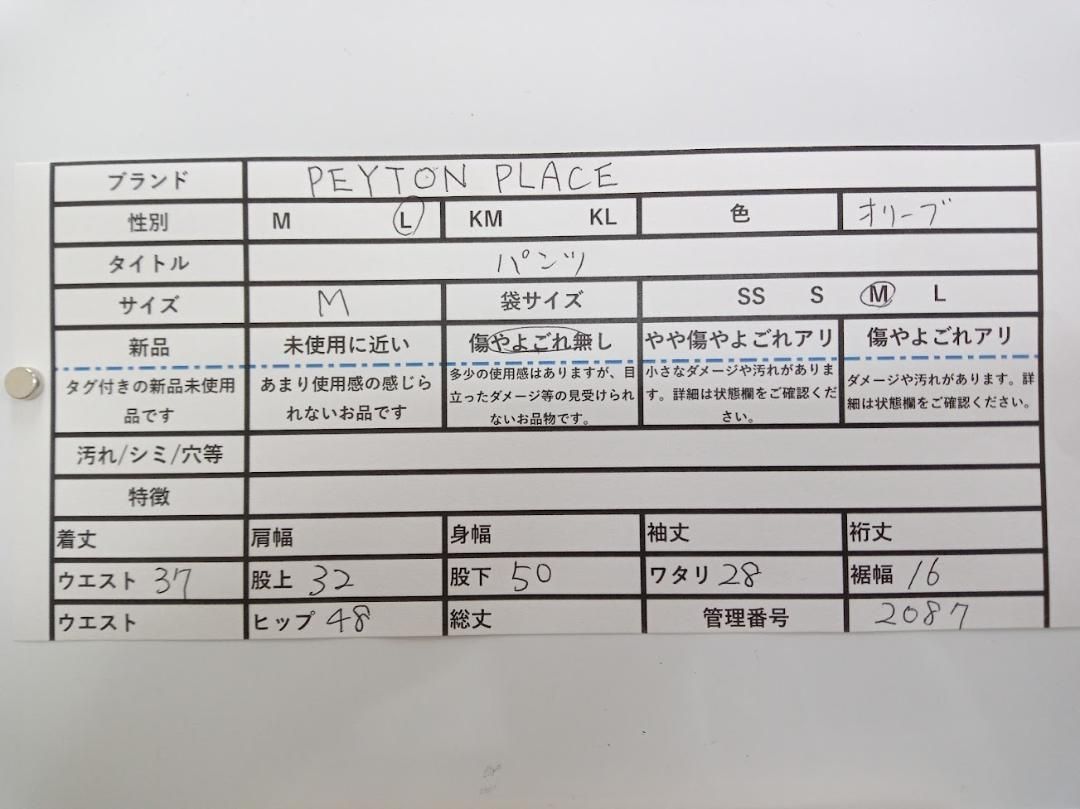 ブランド PEYTON PLACE
性別 M L KM KL 色 オリーブ
タイトル パンツ
サイズ M 袋サイズ SS S M L
新品 未使用に近い 傷やよごれ無し やや傷やよごれアリ 傷やよごれアリ
タグ付きの新品未使用
品です
あまり使用感の感じら
れないお品です
多少の使用感はありますが、目
立ったダメージ等の見受けられ
ないお品物です。
小さなダメージや汚れがありま
す。詳細は状態欄をご確認くだ
さい。
ダメージや汚れがあります。詳
細は状態欄をご確認ください。
汚れ/シミ/穴等
特徴
着丈 肩幅 身幅 袖丈 裄丈
ウエスト 37 股上 32 股下 50 ワタリ 28 裾幅 16
ウエスト ヒップ 48 総丈 管理番号 2087